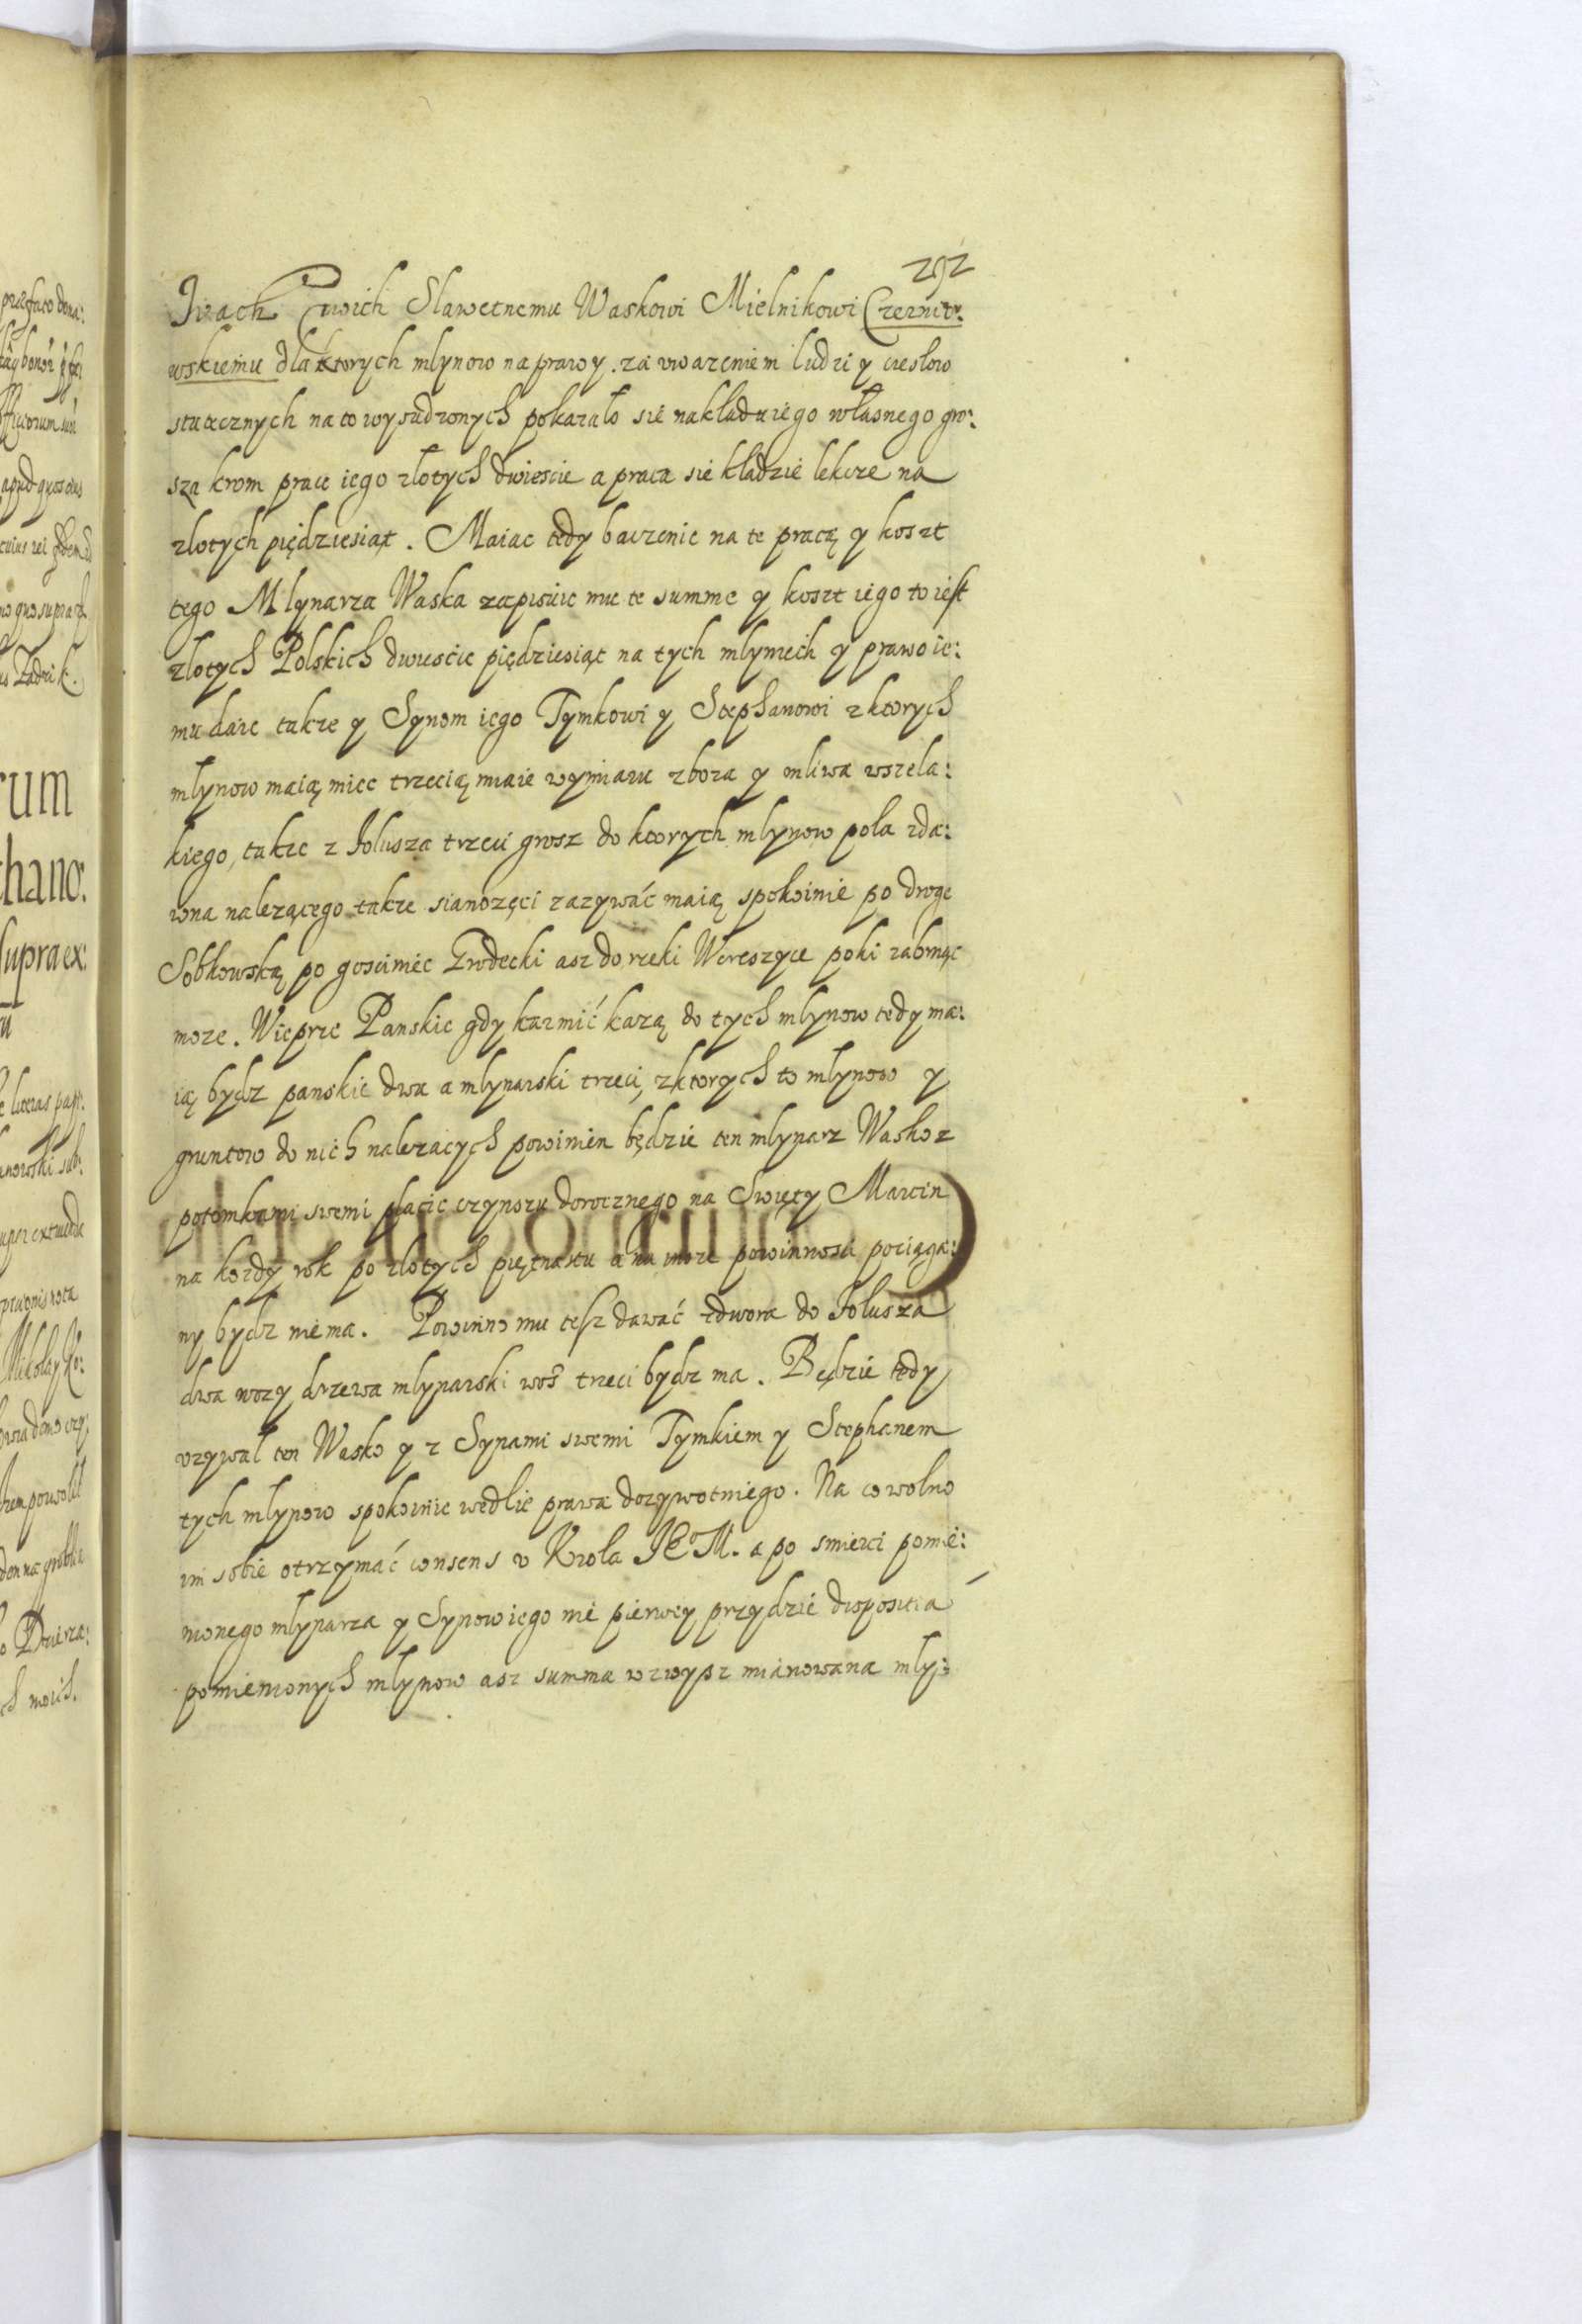 292
Slawetnemu Waskowi Mielnikowi Czerniw:
wskiemu dla ktorych mlynow naprawy. za uwazeniem ludzi y ciesłow
statecznych na to wysadzonych pokazało sie nakładu iego własnego gro:
sza krom prace iego zlotych dwiescie a praca sie kładzie lekcze na
zlotych pię̨dziesiąt. Maiac tedy baczenie na te pracą y koszt
tego Mlynarza Waska zapisuie mu te summe y koszt iego to iest
zlotych Polskich dwiescie piędziesiąt na tych mlyniech y prawo ie:
mu daie takze y Synom iego Tymkowi y Stephanowi z ktorych
mlynow maią miec trzecią miare wymiaru zboza y mliwa wszela:
kiego, takze z folusza trzeci grosz do ktorych mlynow pola zda:
wna nalezącego takze sianozęci zazywać maią spokoinie po droge
Sobkowską po gosciniec Grodecki asz do rzeki Wereszyce poki zabrnąc
moze. Wieprze Panskie gdy karmić kazą do tych mlynow tedy ma:
ią bydz panskie dwa a mlynarski trzeci, z ktorych to mlynow y
gruntow do nich nalezacych powinien będzie ten mlynarz Wasko z
potomkami swemi płacic czynszu dorocznego na Swięty Marcin
na kozdy rok po zlotych piętnastu a na insze powinnosci pociąga:
ny bydz nie ma. Powinno mu tesz dawać z dwora do folusza
dwa wozy drzewa mlynarski wos trzeci bydz ma. Będzie tedy
uzywal ten Wasko y z Synami swemi Tymkiem y Stephanem
tych mlynow spokoinie wedlie prawa dozywotniego. Na co wolno
im sobie otrzymać consens u Krola JEoM. a po smierci pomie:
nionego mlynarza y Synow iego nie pierwey przydzie dispositia
pomienionych mlynow asz summa wzwysz mianowana mly: